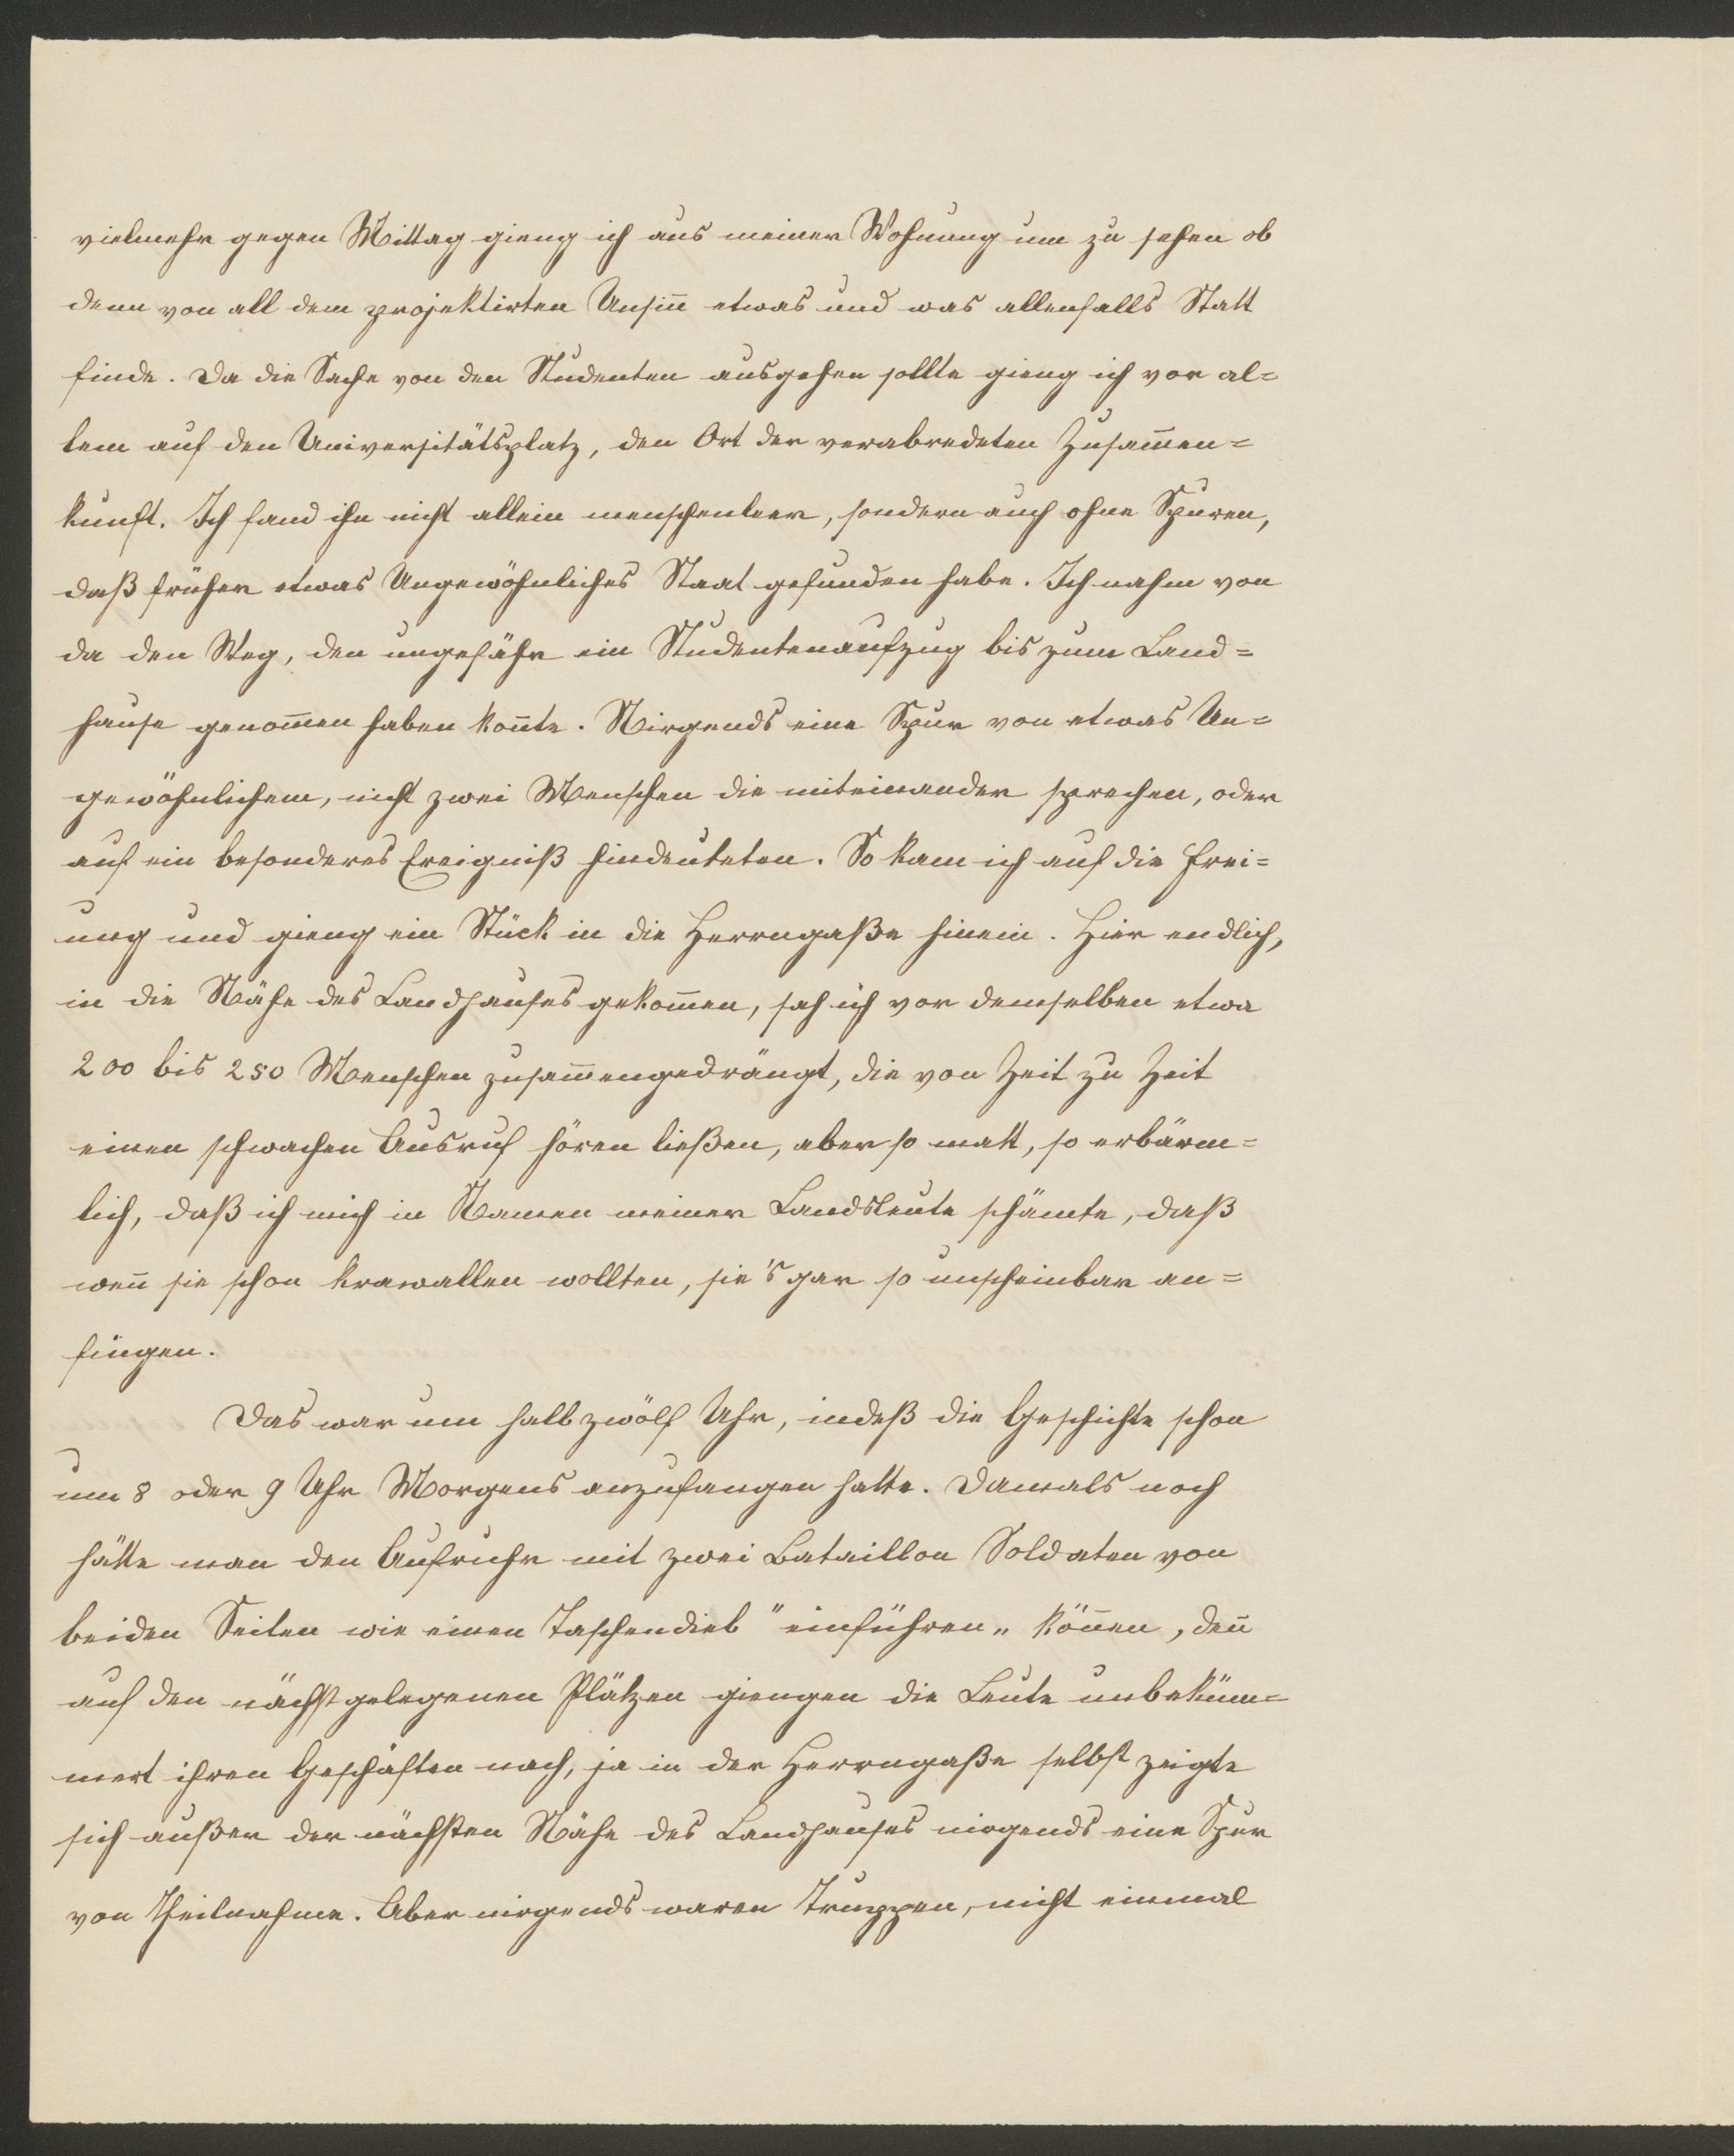 vielmehr gegen Mittag gieng ich aus meiner Wohnung um zu sehen ob
denn von all dem projektirten Unsiñ etwas und was allenfalls Statt
finde. Da die Sache von den Studenten ausgehen sollte gieng ich vor al=
lem auf den Universitätsplatz, den Ort der verabredeten Zusam̄en=
kunft. Ich fand ihn nicht allein menschenleer, sondern auch ohne Spuren,
daß früher etwas Ungewöhnliches Staat gefunden habe. Ich nahm von
da den Weg, den ungefähr ein Studentenaufzug bis zum Land=
hause genom̄en haben koñte. Nirgends eine Spur von etwas Un=
gewöhnlichem, nicht zwei Menschen die miteinander sprechen, oder
auf ein besonderes Ereigniß hindeuteten. So kam ich auf die Frei=
ung und gieng ein Stück in die Herrngaße hinein. Hier endlich,
in die Nähe des Landhauses gekom̄en, sah ich vor demselben etwa
200 bis 250 Menschen zusam̄engedrängt, die von Zeit zu Zeit
einen schwachen Ausruf hören ließen, aber so matt, so erbärm=
lich, daß ich mich in Namen meiner Landsleute schämte, daß
weñ sie schon krawallen wollten, sie's gar so unscheinbar an=
fingen.
Das war um halb zwölf Uhr, indeß die Geschichte schon
um 8 oder 9 Uhr Morgens anzufangen hatte. Damals noch
hätte man den Aufruhr mit zwei Bataillon Soldaten von
beiden Seiten wie einen Taschendieb "einführen„ köñen, deñ
auf den nächstgelegenen Plätzen giengen die Leute unbeküm=
mert ihren Geschäften nach, ja in der Herrngaße selbst zeigte
sich außer der nächsten Nähe des Landhauses nirgends eine Spur
von Theilnahme. Aber nirgends waren Truppen, nicht einmal